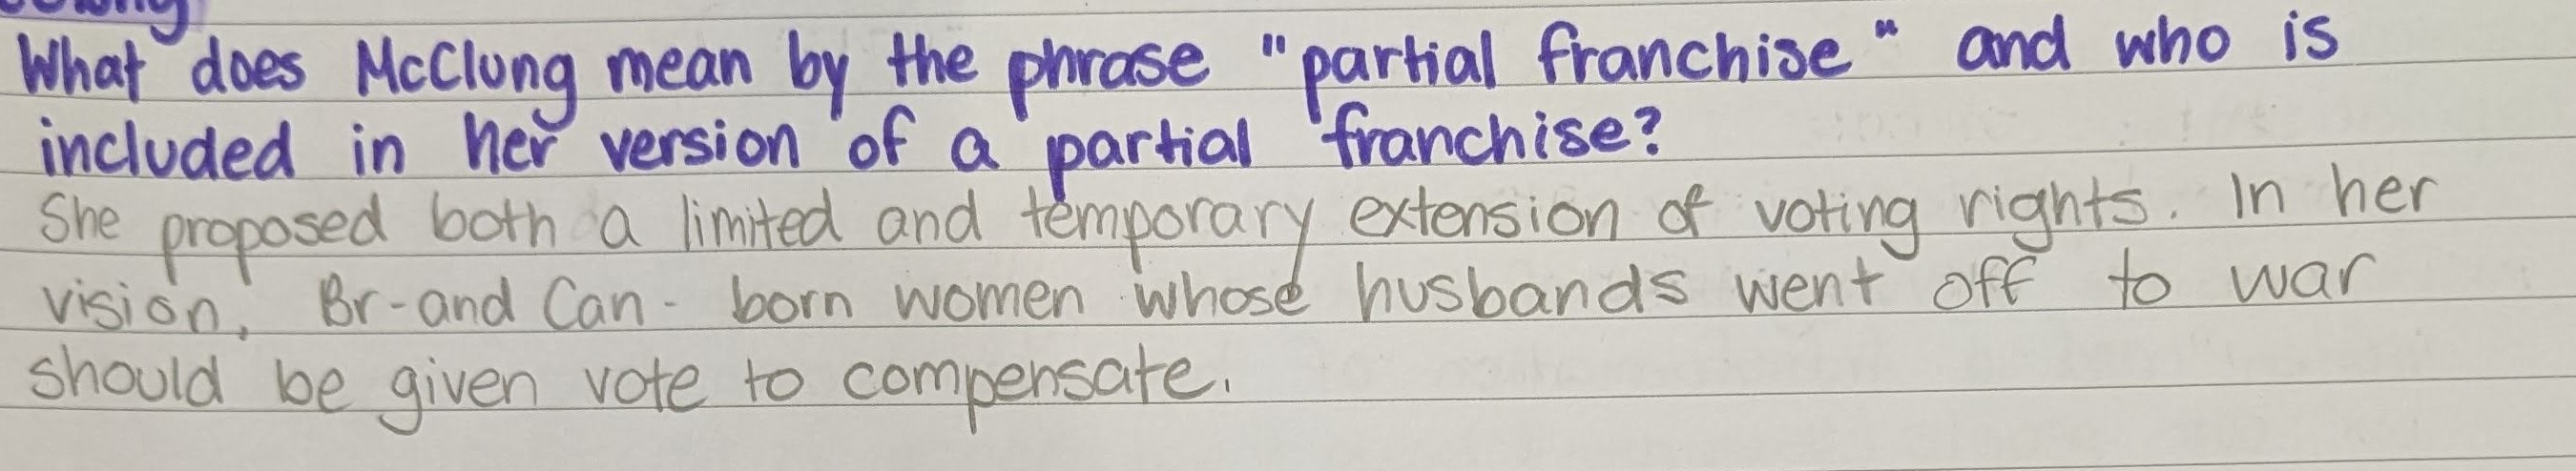 What does McClung mean by the phrase "partial franchise" and who is
included in her version of a partial franchise?
She proposed both a limited and temporary extension of voting rights. In her
vision, Br-and Can- born women whose husbands went off to war
should be given vote to compensate.